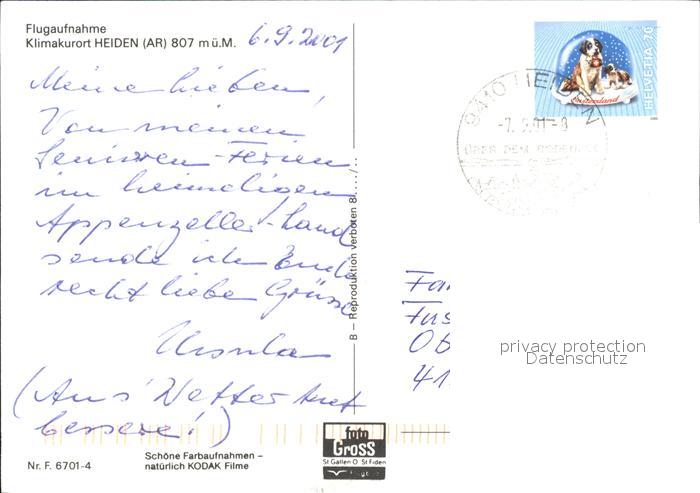 Flugaufnahme
Klimakurort HEIDEN (AR) 807 m ü.M.
6.9.2001
Meine lieben,
Von meinen
Senioren-Ferien
im heimeligen
Appenzeller-Land
sende ich Euch
recht liebe Grüsse
Ursula
(Aus Wetter
bessere!)
HELVETIA 70
Switzerland
9410 HEIDEN
-7.9.01-8
ÜBER DEM BODENSEE
B – Reproduktion verboten 8…./..
Fa
Fus
Ob
41
privacy protection
Datenschutz
Nr. F. 6701-4
Schöne Farbaufnahmen –
natürlich KODAK Filme
foto
GROSS
St Gallen O St Fiden